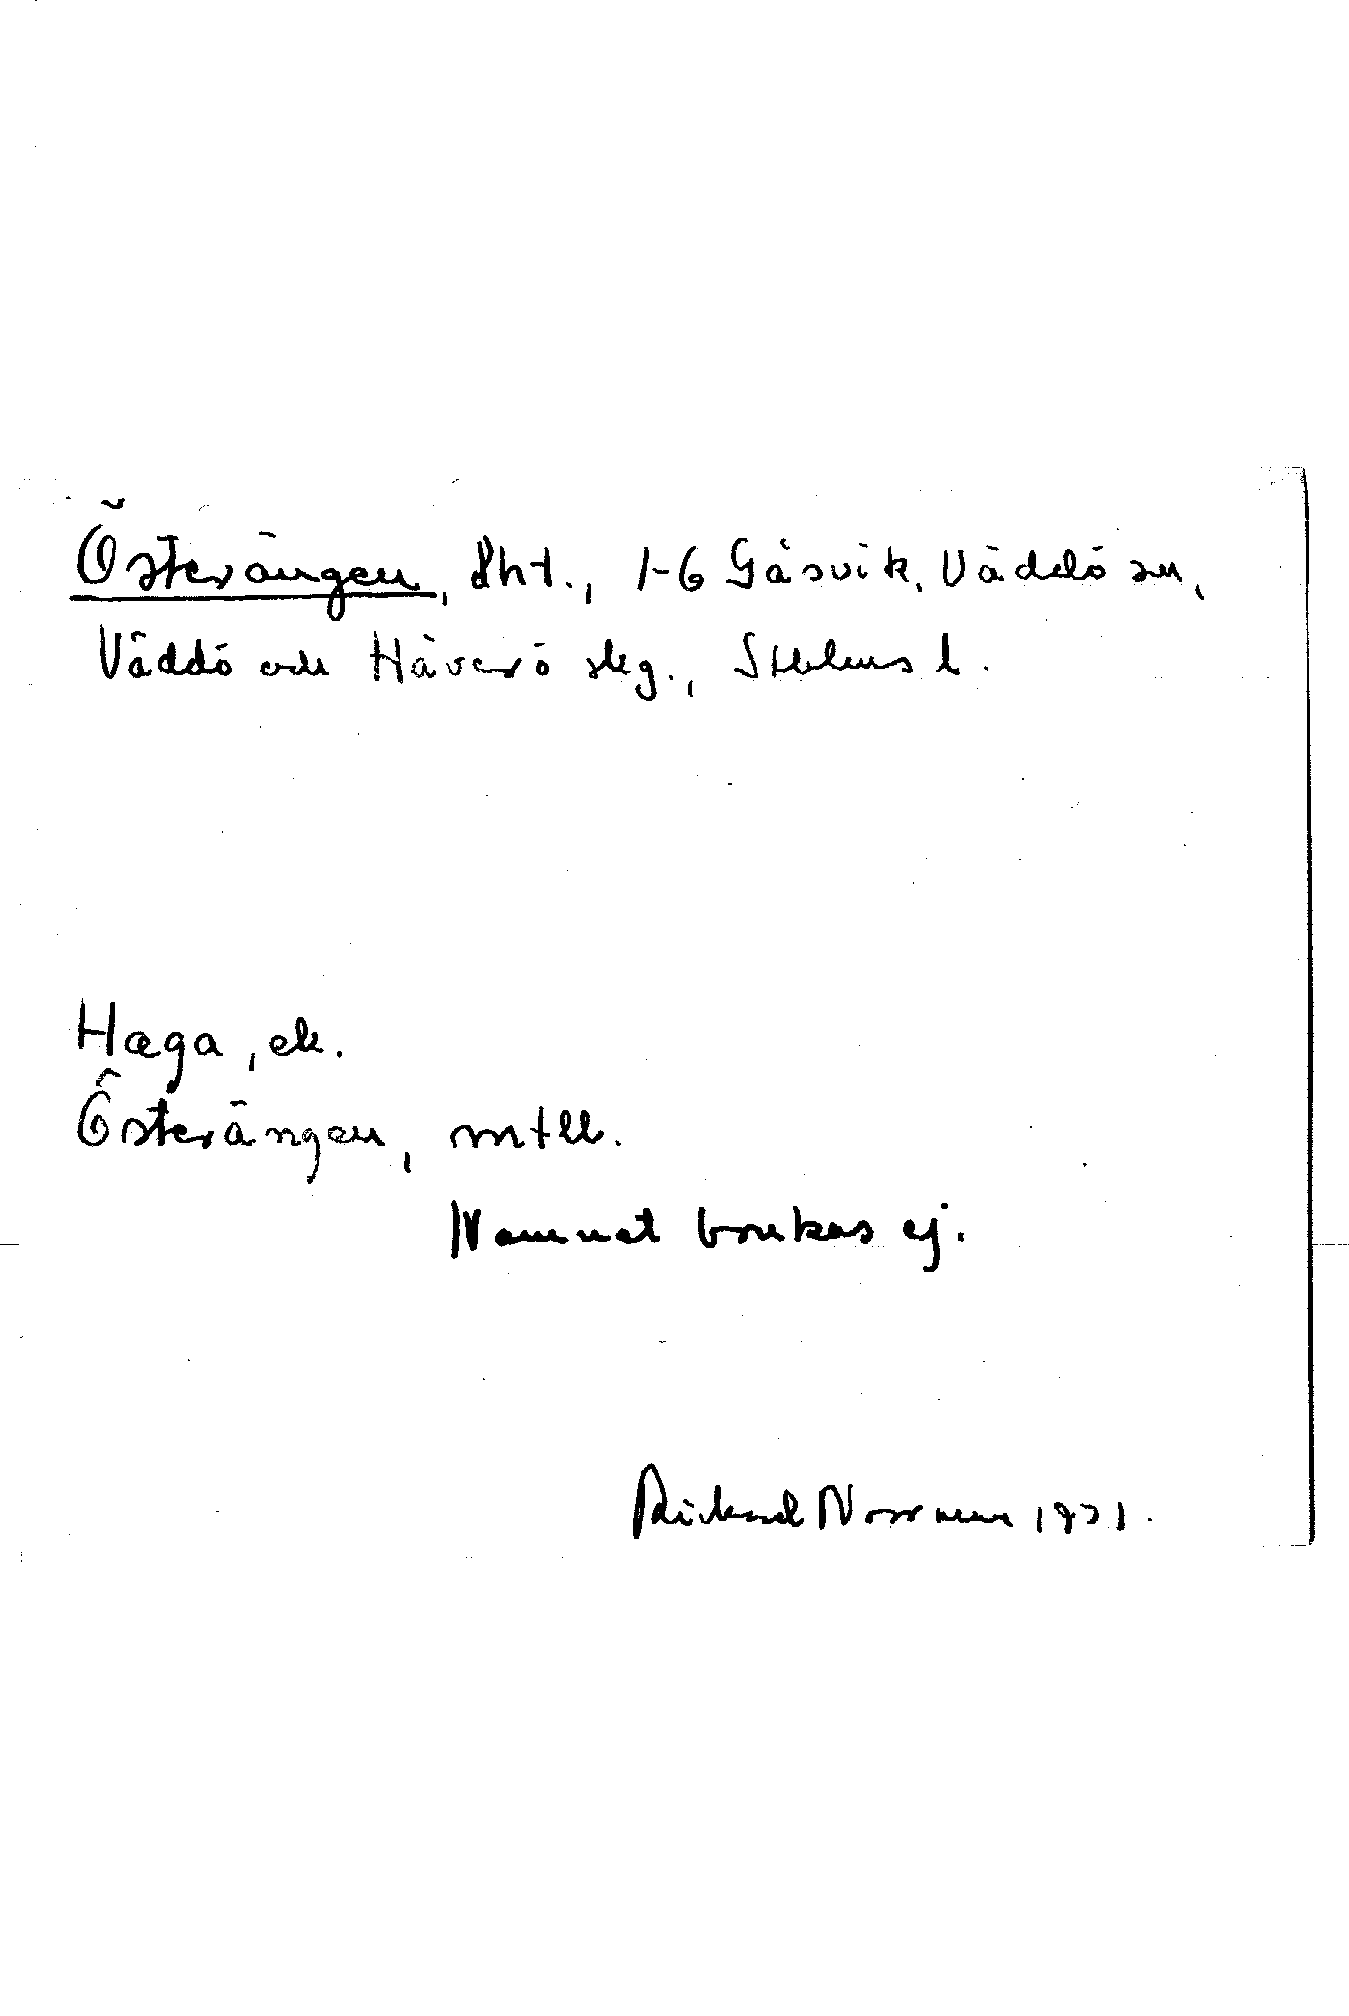 Österängen, lht., 1-6 Gåsvik, Väddö sn,
Väddö och Häverö skg., Sthlms l.
Haga, ek.
Österängen, mtlb.
Namnet brukas ej.
Rickard Norrman 1971.